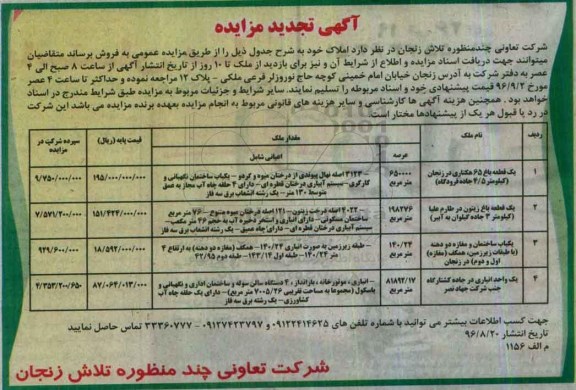 آگهی تجدید مزایده
شرکت تعاونی چندمنظوره تلاش زنجان در نظر دارد املاک خود به شرح جدول ذیل را از طریق مزایده عمومی به فروش برساند متقاضیان
میتوانند جهت دریافت اسناد مزایده و اطلاع از شرایط آن و نیز برای بازدید از ملک تا ۱۰ روز از تاریخ انتشار آگهی از ساعت ۸ صبح الی ۴
عصر به دفتر شرکت به آدرس زنجان خیابان امام خمینی کوچه حاج نوروزلر فرعی ملکی - پلاک ۱۲ مراجعه نموده و حداکثر تا ساعت ۴ عصر
مورخ ۹۶/۹/۲ قیمت پیشنهادی خود و اسناد مربوطه را تسلیم نمایند. سایر شرایط و جزئیات مربوط به مزایده طبق شرایط مندرج در اسناد
خواهد بود. همچنین هزینه آگهی ها کارشناسی و سایر هزینه های قانونی مربوط به انجام مزایده بعهده برنده مزایده می باشد این شرکت
در رد یا قبول هر یک از پیشنهادها مختار است.
ردیف نام ملک مقدار ملک قیمت پایه (ریال) سپرده شرکت در مزایده
عرصه اعیانی شامل
۱ یک قطعه باغ ۶۵ هکتاری در زنجان (کیلومتر ۴/۵ جاده فرودگاه) ۶۵۰۰۰۰ متر مربع
۳۱۲۳ اصله نهال پیوندی از درختان میوه و گردو - یکباب ساختمان نگهبانی و
کارگری - سیستم آبیاری درختان قطره ای - دارای ۴ حلقه چاه آب مجاز به عمق
متوسط ۱۳۰ متر - یک رشته انشعاب برق سه فاز
۱۹۵/۰۰۰/۰۰۰/۰۰۰ ۹/۷۵۰/۰۰۰/۰۰۰
۲ یک قطعه باغ زیتون در طارم علیا (کیلومتر ۳ جاده گیلوان به آببر) ۱۹۸۲۷۶ متر مربع
۴۰۲۲ اصله درخت زیتون - ۱۲۱ اصله درختان میوه متنوع - ۷۶ متر مربع
ساختمان مسکونی - دارای انباری و استخر ذخیره آب به حجم ۳۶ متر مکعب -
سیستم آبیاری درختان قطره ای - دارای چاه عمیق - یک رشته انشعاب برق سه فاز
۱۵۱/۴۲۴/۰۰۰/۰۰۰ ۷/۵۷۱/۲۰۰/۰۰۰
۳ یکباب ساختمان و مغازه دو دهنه (با طبقات زیرزمین، همکف (مغازه) اول و دوم) در زنجان ۱۴۰/۲۴ متر مربع
- طبقه زیرزمین به صورت انباری ۱۴۰/۲۴ - همکف (مغازه دو دهنه) به ارتفاع ۴
متر ۱۴۰/۲۴ - طبقه اول ۱۴۳/۱۴ - طبقه دوم ۴۲/۹۵
۱۸/۵۹۲/۰۰۰/۰۰۰ ۹۲۹/۶۰۰/۰۰۰
۴ یک واحد انباری در جاده کشتارگاه جنب شرکت جهاد نصر ۸۱۸۹۴/۱۷ متر مربع
- انباری، موتورخانه، بارانداز، ۴ دستگاه سالن سوله و ساختمان اداری و نگهبانی و
باسکول (مجموعا به مساحت تقریبی ۷۰۰۵/۲۶ متر مربع) - دارای یک حلقه چاه آب
کشاورزی - یک رشته برق سه فاز
۸۷/۰۶۴/۰۱۳/۰۰۰ ۴/۳۵۳/۲۰۰/۶۵۰
جهت کسب اطلاعات بیشتر می توانید با شماره تلفن های ۰۹۱۲۲۴۱۴۶۲۵ و ۰۹۱۲۷۴۲۳۷۹۷ - ۳۳۳۶۰۷۷۷ تماس حاصل نمایید
تاریخ انتشار ۹۶/۸/۲۰
م الف ۱۱۵۶
شرکت تعاونی چند منظوره تلاش زنجان